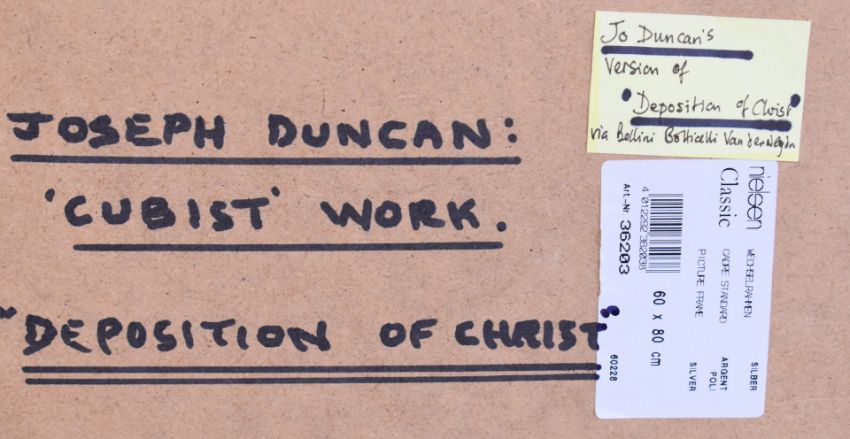 JOSEPH DUNCAN:
'CUBIST' WORK.
"DEPOSITION OF CHRIST"
Jo Duncan's
Version of
"Deposition of Christ"
via Bellini Botticelli Van der Weydn
nielsen
Classic
WECHSELRAHMEN
CADRE STANDARD
PICTURE FRAME
SILBER
ARGENT
POLI
SILVER
Art.-Nr. 36203
4 012292 362038
60 x 80 cm
60228